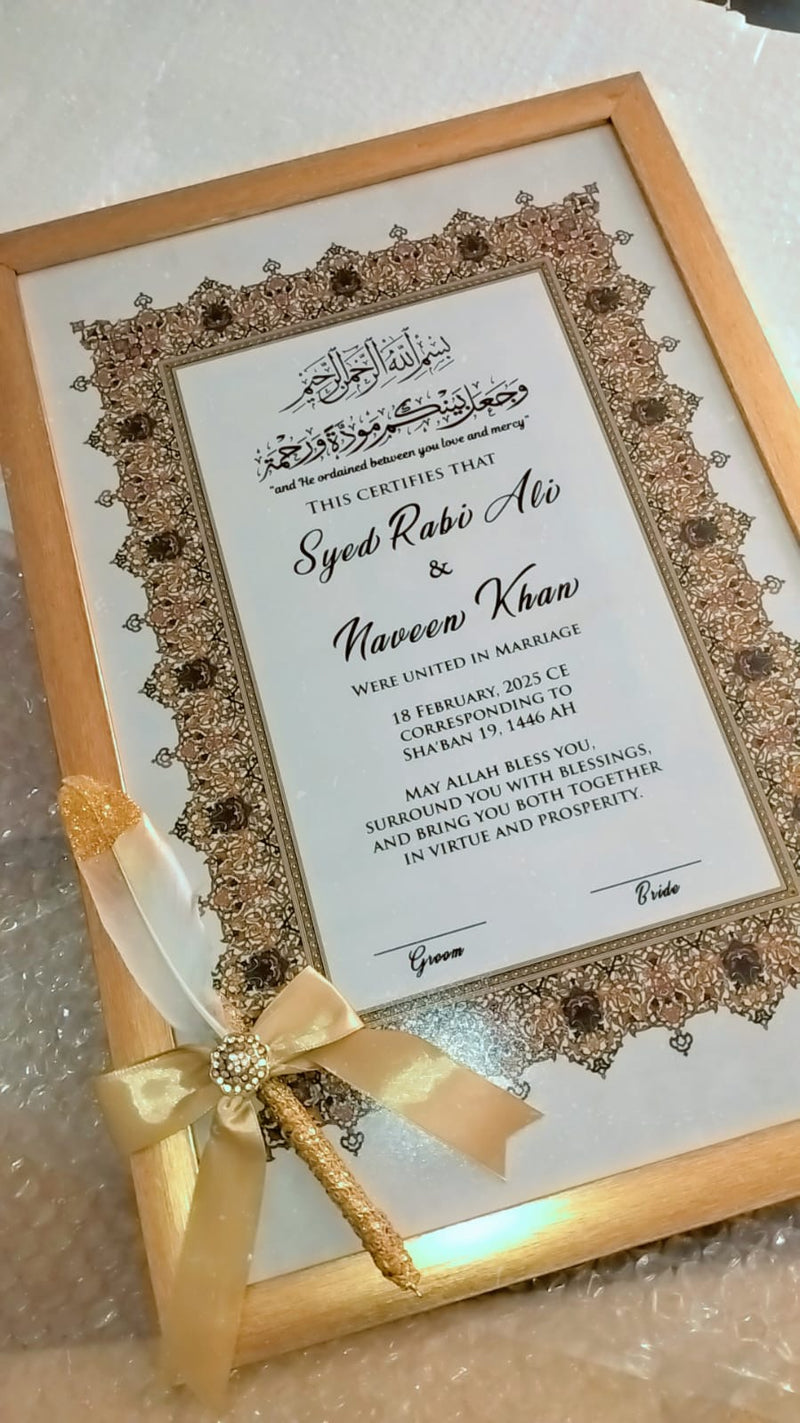 بِسْمِ اللَّهِ الرَّحْمَٰنِ الرَّحِيمِ
وَجَعَلَ بَيْنَكُم مَّوَدَّةً وَرَحْمَةً
"and He ordained between you love and mercy"
THIS CERTIFIES THAT
Syed Rabi Ali
&
Naveen Khan
WERE UNITED IN MARRIAGE
18 FEBRUARY, 2025 CE
CORRESPONDING TO
SHA'BAN 19, 1446 AH
MAY ALLAH BLESS YOU,
SURROUND YOU WITH BLESSINGS,
AND BRING YOU BOTH TOGETHER
IN VIRTUE AND PROSPERITY.
Groom
Bride